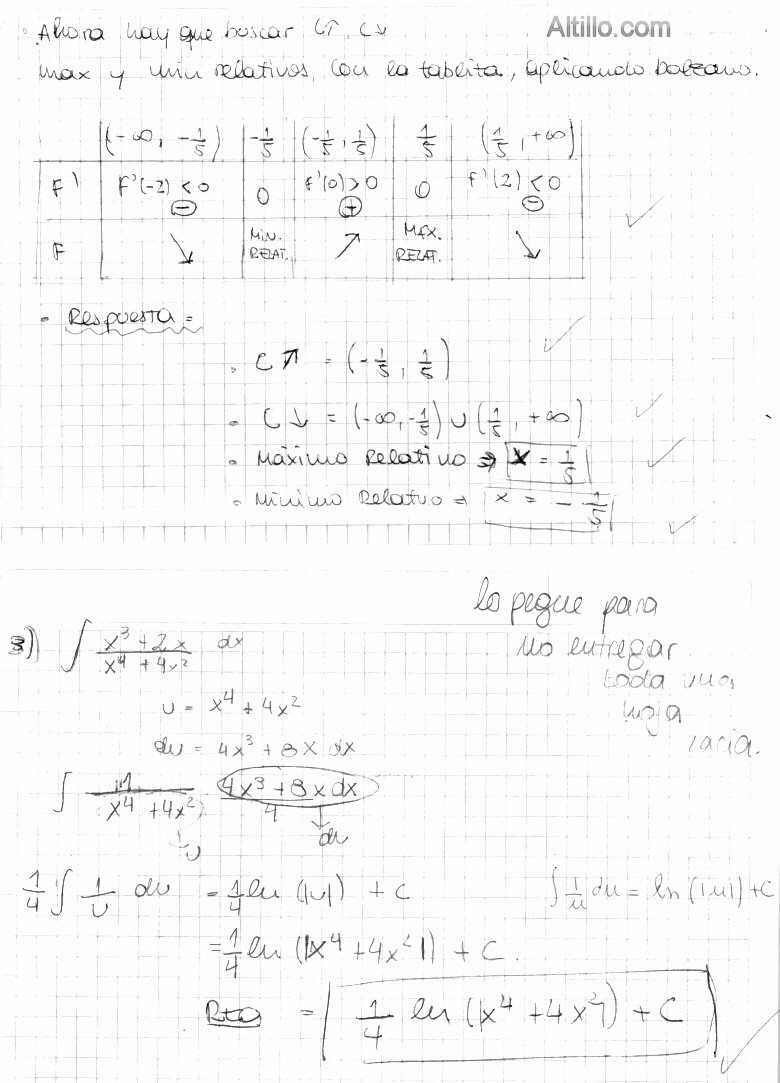 Altillo.com
Ahora hay que buscar C↑, C↓
max y min relativos, con la tablita, aplicando bolzano.
(-∞, -1/5) | -1/5 | (-1/5, 1/5) | 1/5 | (1/5, +∞)
F' | F'(-2) < 0 ⊖ | 0 | F'(0) > 0 ⊕ | 0 | F'(2) < 0 ⊖
F | ↘ | MIN. RELAT. | ↗ | MAX. RELAT. | ↘
• Respuesta =
• C↗ = (-1/5, 1/5) ✓
• C↓ = (-∞, -1/5) ∪ (1/5, +∞) ✓
• Máximo Relativo → x = 1/5 ✓
• Mínimo Relativo → x = -1/5 ✓
lo pegue para
no entregar
toda una
hoja
vacia.
3) ∫ (x³ + 2x)/(x⁴ + 4x²) dx
u = x⁴ + 4x²
du = 4x³ + 8x dx
∫ 1/(x⁴ + 4x²) (4x³ + 8x dx)/4
↓u ↓du
1/4 ∫ 1/u du = 1/4 ln (|u|) + C
∫ 1/u du = ln (|u|) + C
= 1/4 ln (|x⁴ + 4x²|) + C.
Rta = 1/4 ln (|x⁴ + 4x²|) + C ✓